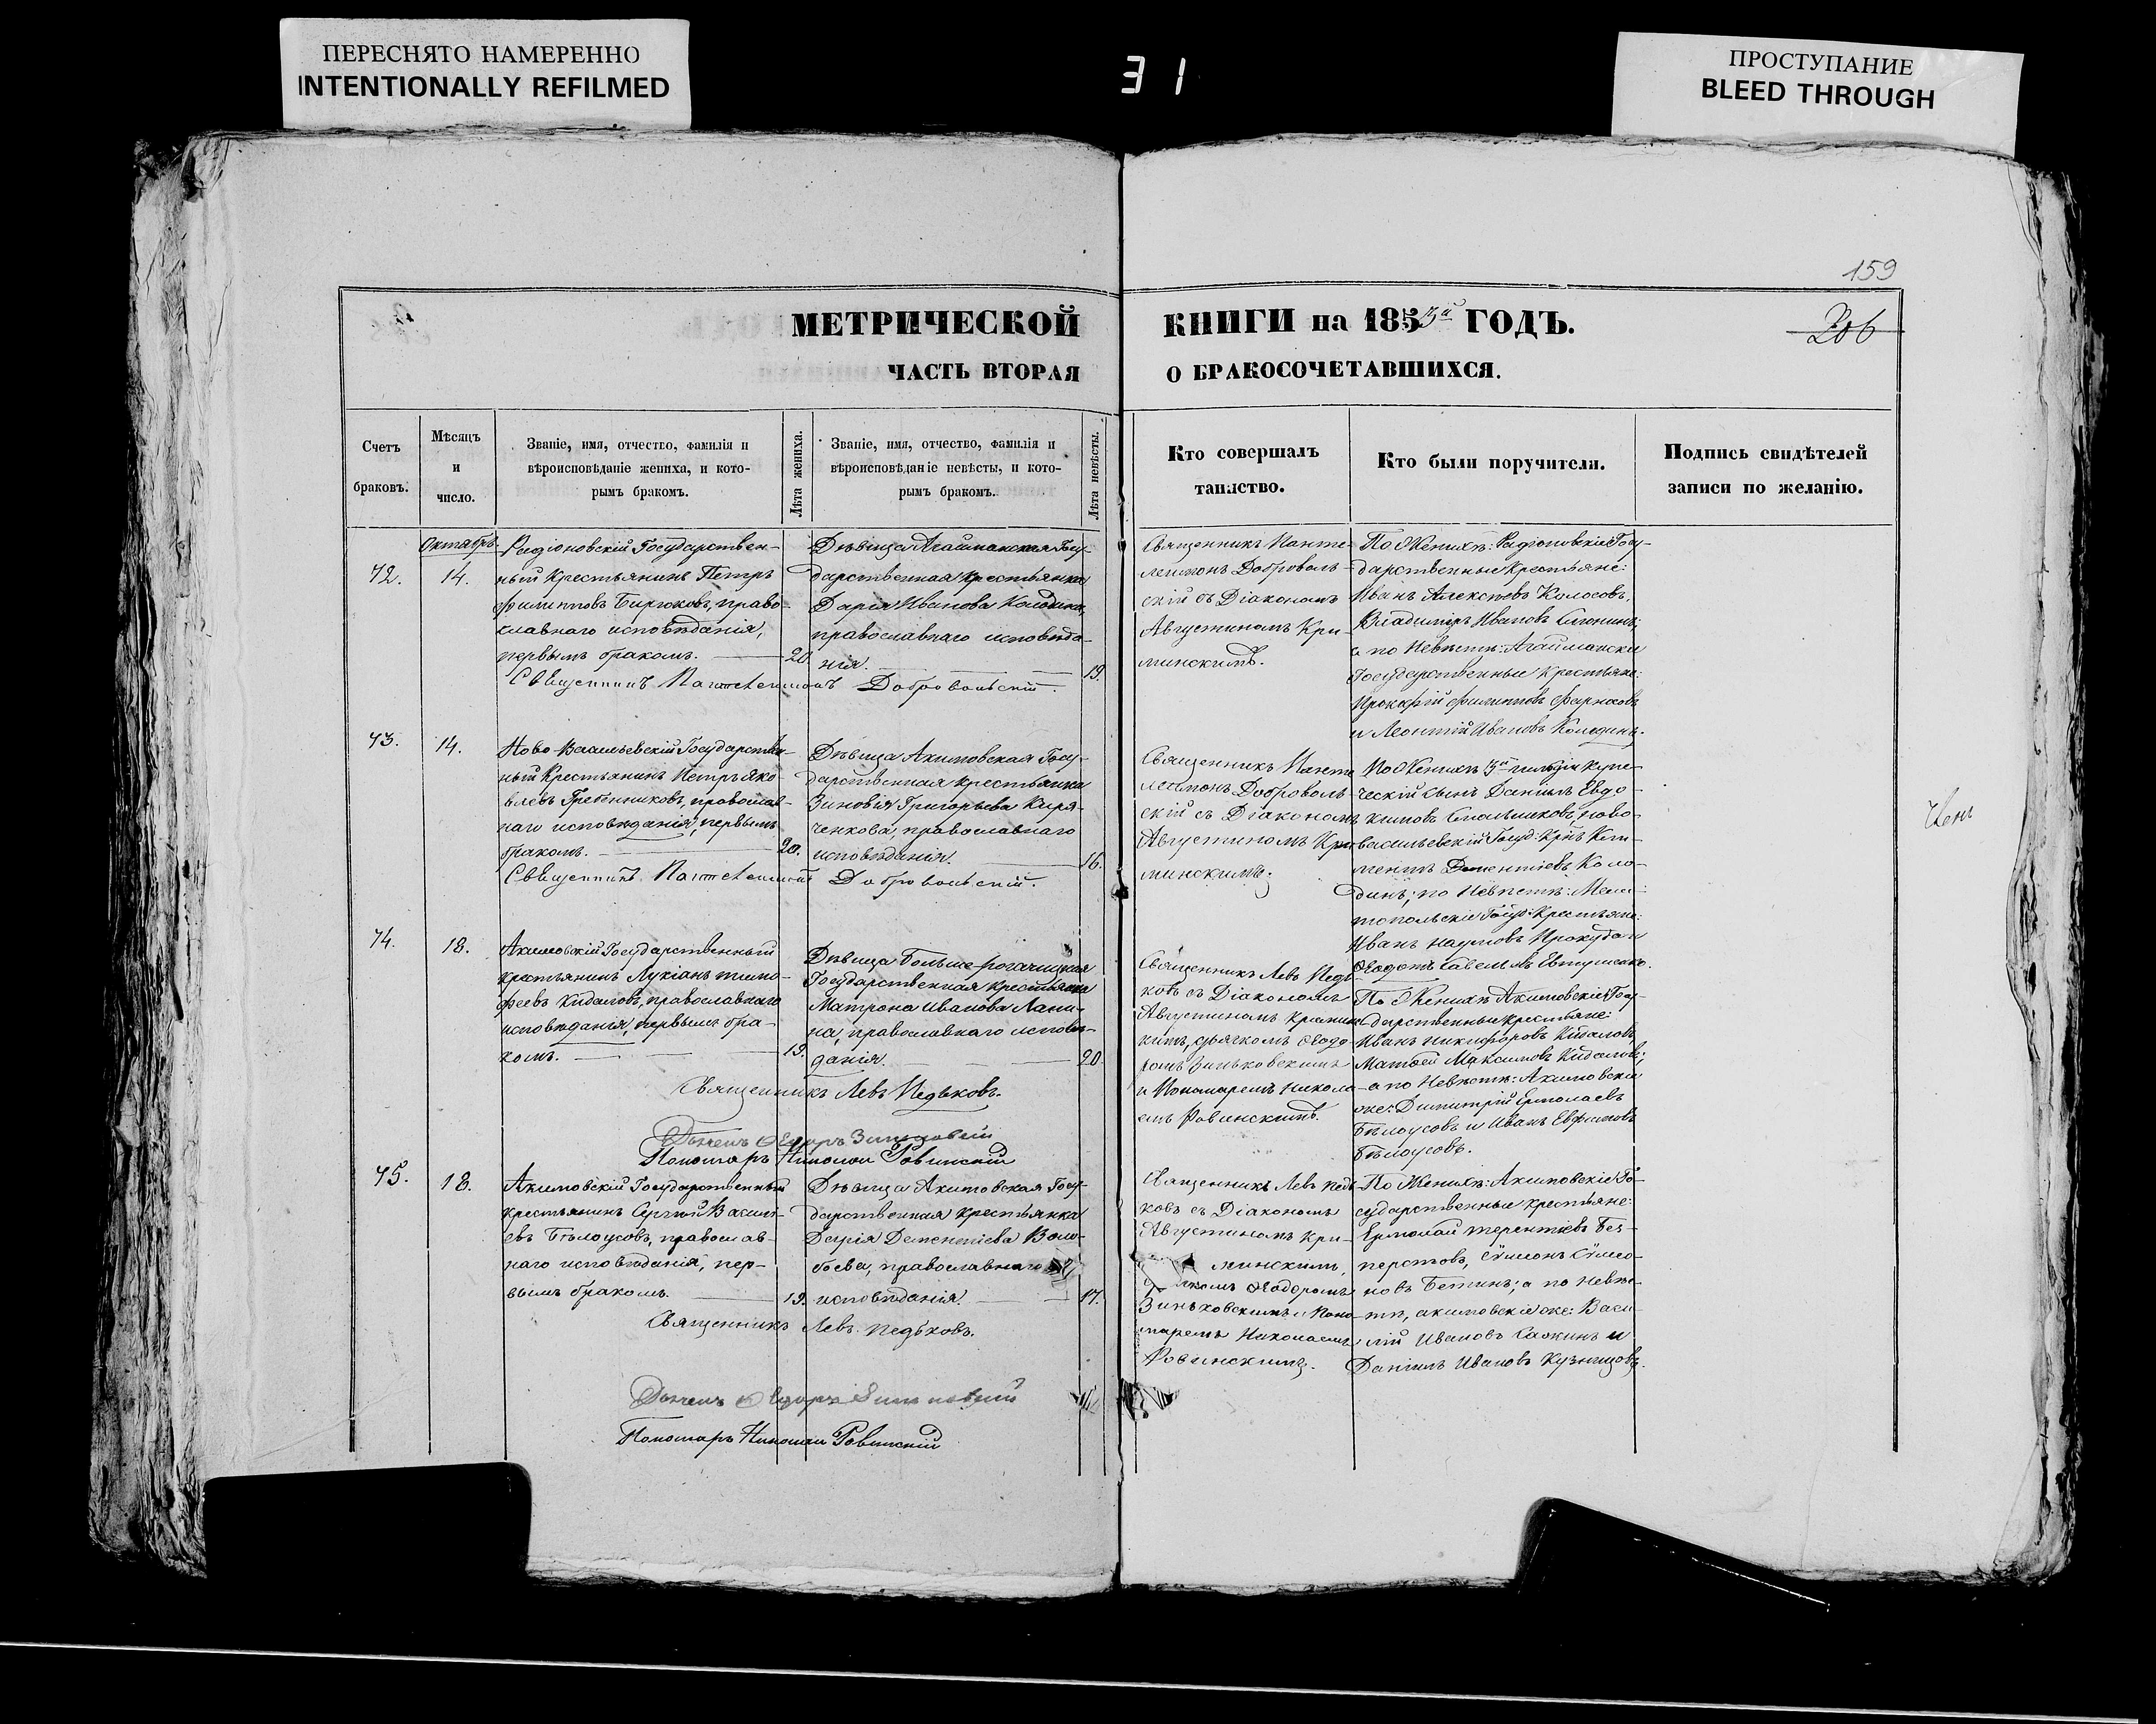 ПЕРЕСНЯТО НАМЕРЕННО
INTENTIONALLY REFILMED
31
ПРОСТУПАНИЕ
BLEED THROUGH
159
206
МЕТРИЧЕСКОЙ КНИГИ на 1853й ГОДЪ.
ЧАСТЬ ВТОРАЯ О БРАКОСОЧЕТАВШИХСЯ.
Счетъ
браковъ.
Мѣсяцъ
и
число.
Званіе, имя, отчество, фамилія и
вѣроисповѣданіе жениха, и кото-
рымъ бракомъ.
Лѣта жениха.
Званіе, имя, отчество, фамилія и
вѣроисповѣданіе невѣсты, и кото-
рымъ бракомъ.
Лѣта невѣсты.
Кто совершалъ
таинство.
Кто были поручители.
Подпись свидѣтелей
записи по желанію.
Октябрь
72.
14.
Радіоновскій Государствен-
ный Крестьянинъ Петръ
Филипповъ Бирюковъ, право-
славнаго исповѣданія,
первымъ бракомъ.
20.
Дѣвица Агайманская Госу-
дарственная крестьянка
Дарія Иванова Колодина,
православнаго исповѣда-
нія.
19.
Священникъ Пантелеимонъ Добровольскій.
Священникъ Панте-
леимонъ Доброволь-
скій съ Діакономъ
Августиномъ Кри-
минскимъ.
По Женихѣ: Радіоновскіе Госу-
дарственные Крестьяне:
Иванъ Алексѣевъ Колосовъ,
Владиміръ Ивановъ
а по Невѣстѣ: Агаймански
Государственные Крестьяне:
Прокофій Филипповъ
и Леонтій Ивановъ Колодинъ.
73.
14.
Ново-Васильевскій Государствен-
ный Крестьянинъ Петръ Яко-
влевъ Гребенниковъ, православ-
наго исповѣданія, первымъ
бракомъ.
20.
Дѣвица Акимовская Госу-
дарственная крестьянка
Зиновія Григорьева Киря-
ченкова, православнаго
исповѣданія.
16.
Священникъ Пантелеимонъ Добровольскій.
Священникъ Панте
леимонъ Доброволь
скій съ Діакономъ
Августиномъ Кри
минскимъ.
По Женихѣ 3й гильдіи Купе-
ческій сынъ Даніилъ Евдо-
кимовъ Ново-
васильевскій Госуд: Крнъ Кли-
ментъ Дементіевъ Коло-
динъ; по Невѣстѣ: Мели-
топольскіе Госуд: Крестьяне:
Иванъ Наумовъ Прокуда и
Ѳедотъ Савельевъ Евтушенко.
74.
18.
Акимовскій Государственный
крестьянинъ Лукіанъ Тимо-
феевъ Кидаловъ, православнаго
исповѣданія, первымъ бра-
комъ.
19.
Дѣвица Больше-рогачицкая
Государственная крестьянка
Матрона Иванова Лани-
на, православнаго исповѣ-
данія.
20.
Священникъ Левъ Педьковъ.
Пономаръ Николай Ровинскій
Священникъ Левъ Педь
ковъ съ Діакономъ
Августиномъ Кримин
кимъ, дьячкомъ Ѳедо
ромъ Зиньковскимъ
и Пономаремъ Никола
емъ Ровинскимъ.
По Женихѣ Акимовскіе Госу-
дарственные крестьяне:
Иванъ Никифоровъ Кидаловъ
Матѳей Максимовъ Кидаловъ;
а по Невѣстѣ: Акимовскіе
же: Димитрій Ермолаевъ
Бѣлоусовъ и Иванъ Евфимовъ
Бѣлоусовъ.
75.
18.
Акимовскій Государственный
крестьянинъ Сергій Василі-
евъ Бѣлоусовъ, православ-
наго исповѣданія, пер-
вымъ бракомъ.
19.
Дѣвица Акимовская Госу-
дарственная крестьянка
Дарія Дементіева Воло-
боева, православнаго
исповѣданія.
17.
Священникъ Левъ Педьковъ.
Пономаръ Николай Ровинскій
Священникъ Левъ Педь
ковъ съ Діакономъ
Августиномъ Кри-
минскимъ,
Ѳедоромъ
Зиньковскимъ и Поно-
маремъ Николаемъ
Ровинскимъ.
По Женихѣ: Акимовскіе Го-
сударственные крестьяне:
Ермолай Терентіевъ Без-
перстовъ, Сѵмеонъ Сѵмео-
новъ Бетинъ; а по Невѣс-
тѣ, акимовскіе же: Васи-
лій Ивановъ Сажинъ и
Даніилъ Ивановъ Кузнецовъ.